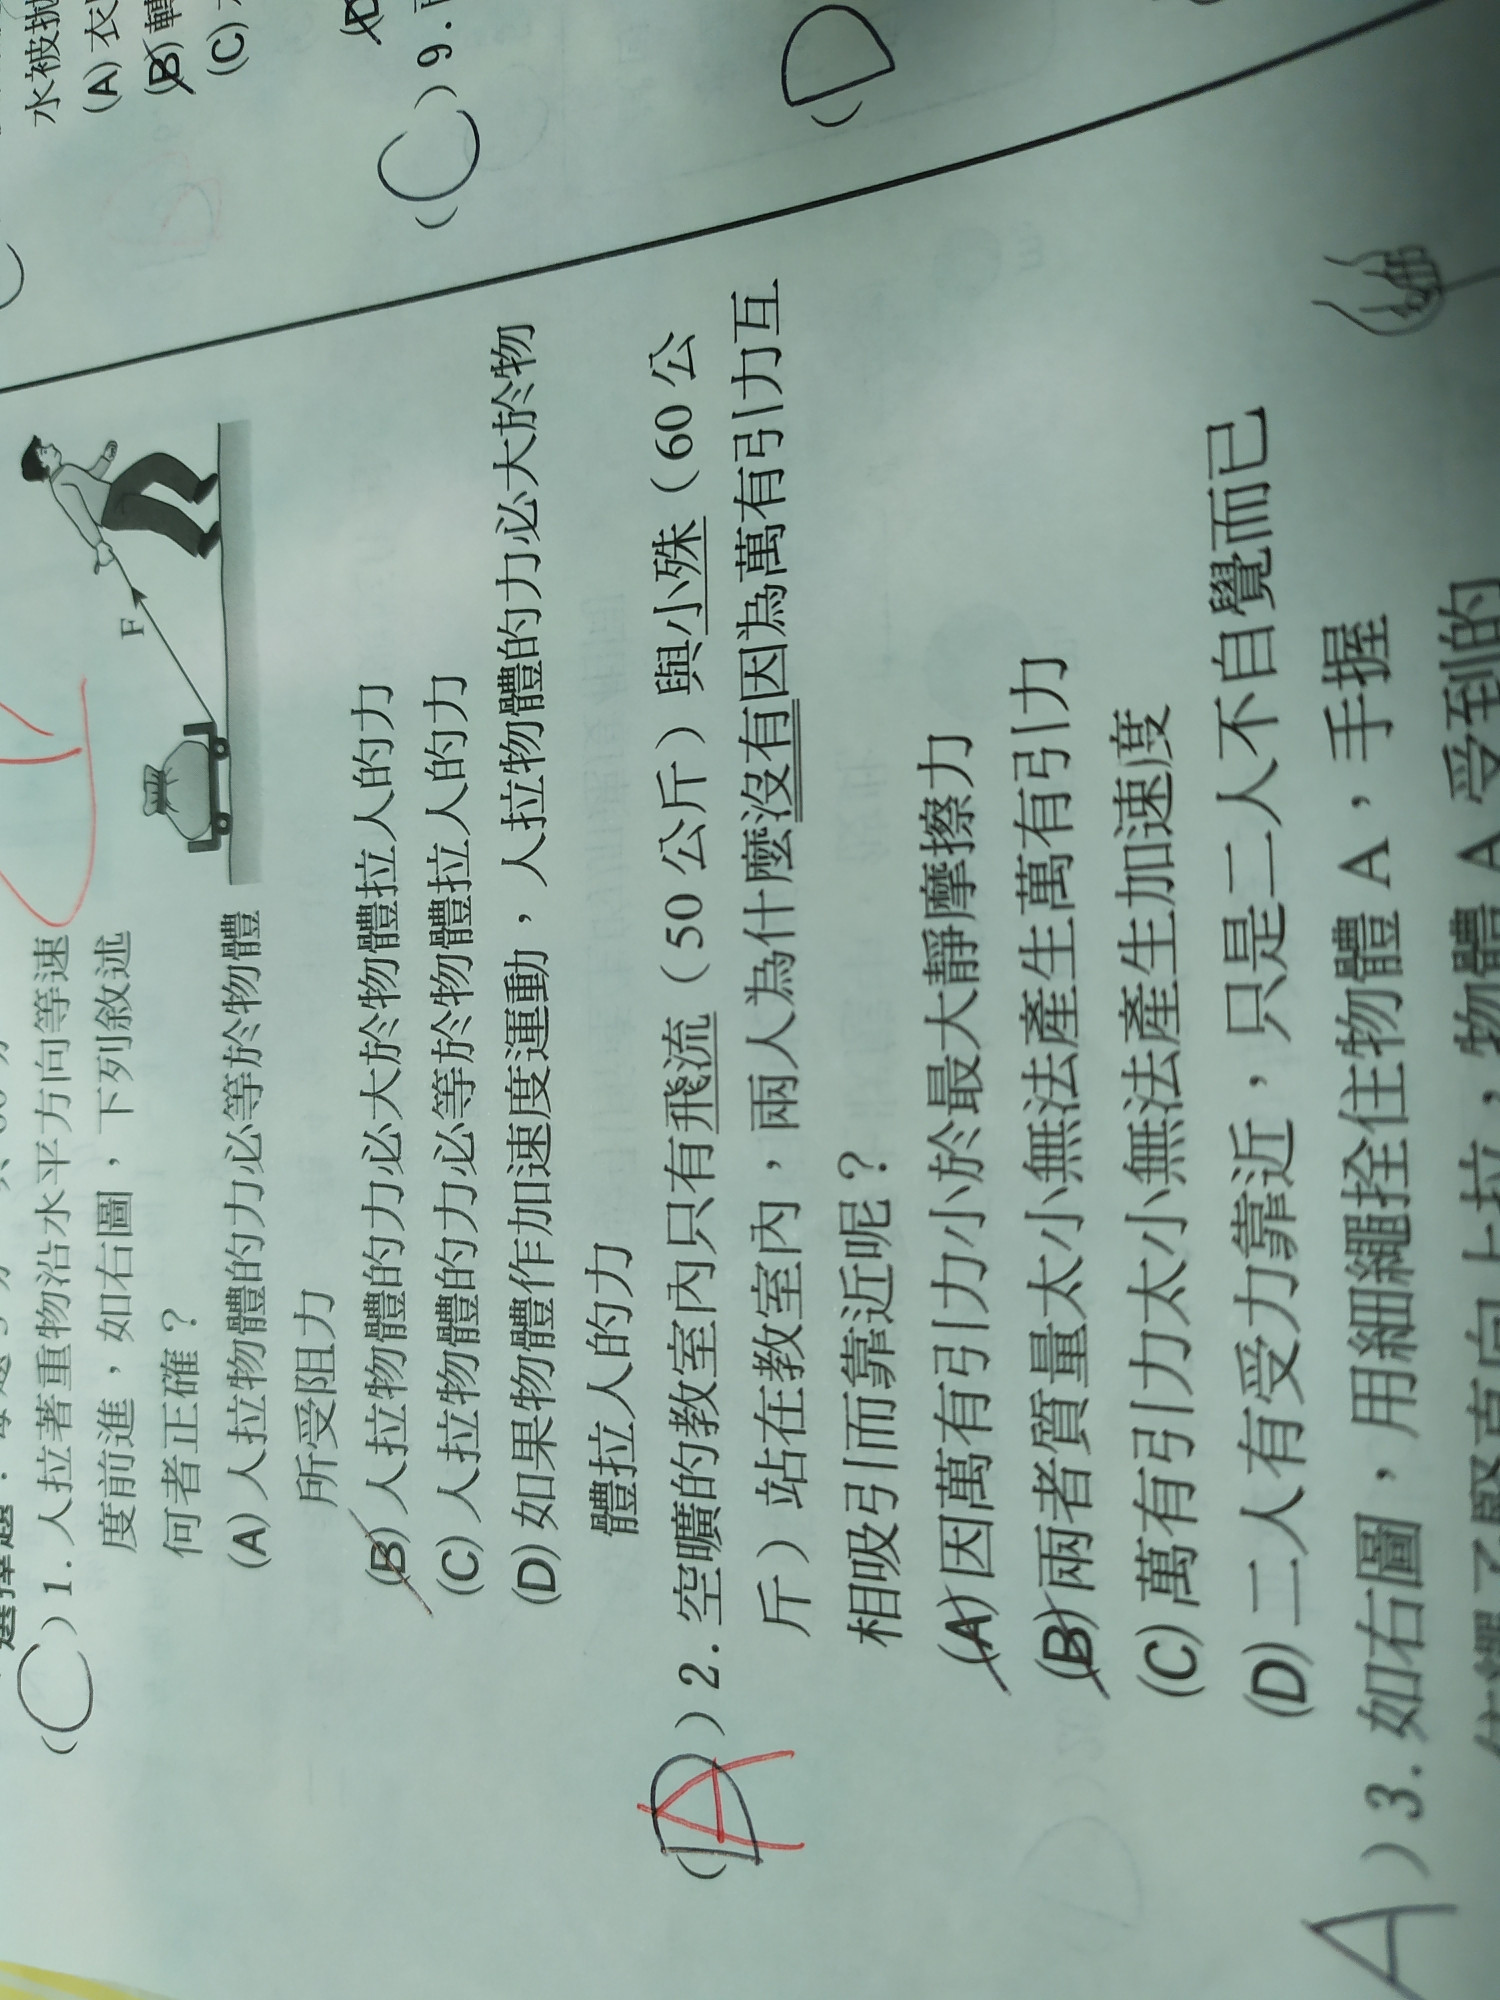 水被拋
(A) 衣
(B) 轉
(C)
(C) 9.
(D
選擇題：每題
(C) 1. 人拉著重物沿水平方向等速
度前進，如右圖，下列敘述
何者正確？
F
(A) 人拉物體的力必等於物體
所受阻力
(B) 人拉物體的力必大於物體拉人的力
(C) 人拉物體的力必等於物體拉人的力
(D) 如果物體作加速度運動，人拉物體的力必大於物
體拉人的力
(D A) 2. 空曠的教室內只有飛流（50 公斤）與小殊（60 公
斤）站在教室內，兩人為什麼沒有因為萬有引力互
相吸引而靠近呢？
(A) 因萬有引力小於最大靜摩擦力
(B) 兩者質量太小無法產生萬有引力
(C) 萬有引力太小無法產生加速度
(D) 二人有受力靠近，只是二人不自覺而已
A) 3. 如右圖，用細繩拴住物體 A，手握
竪直向上拉，物體 A 受到的